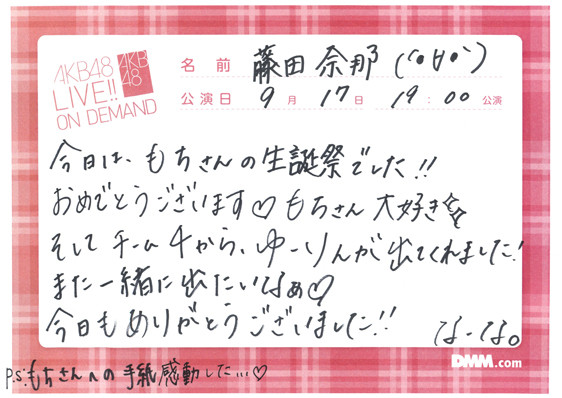 AKB48
LIVE!!
ON DEMAND
AKB
48
名前 藤田奈那 (｀・∀・´)
公演日 9月17日 19:00公演
今日は、もちさんの生誕祭でした!!
おめでとうございます♡もちさん大好き
そしてチーム4から、ゆーりんが出てくれました!
また一緒に出たいなぁ♡
今日もありがとうございました!!
なーな。
DMM.com
P.S.もちさんへの手紙感動した…♡